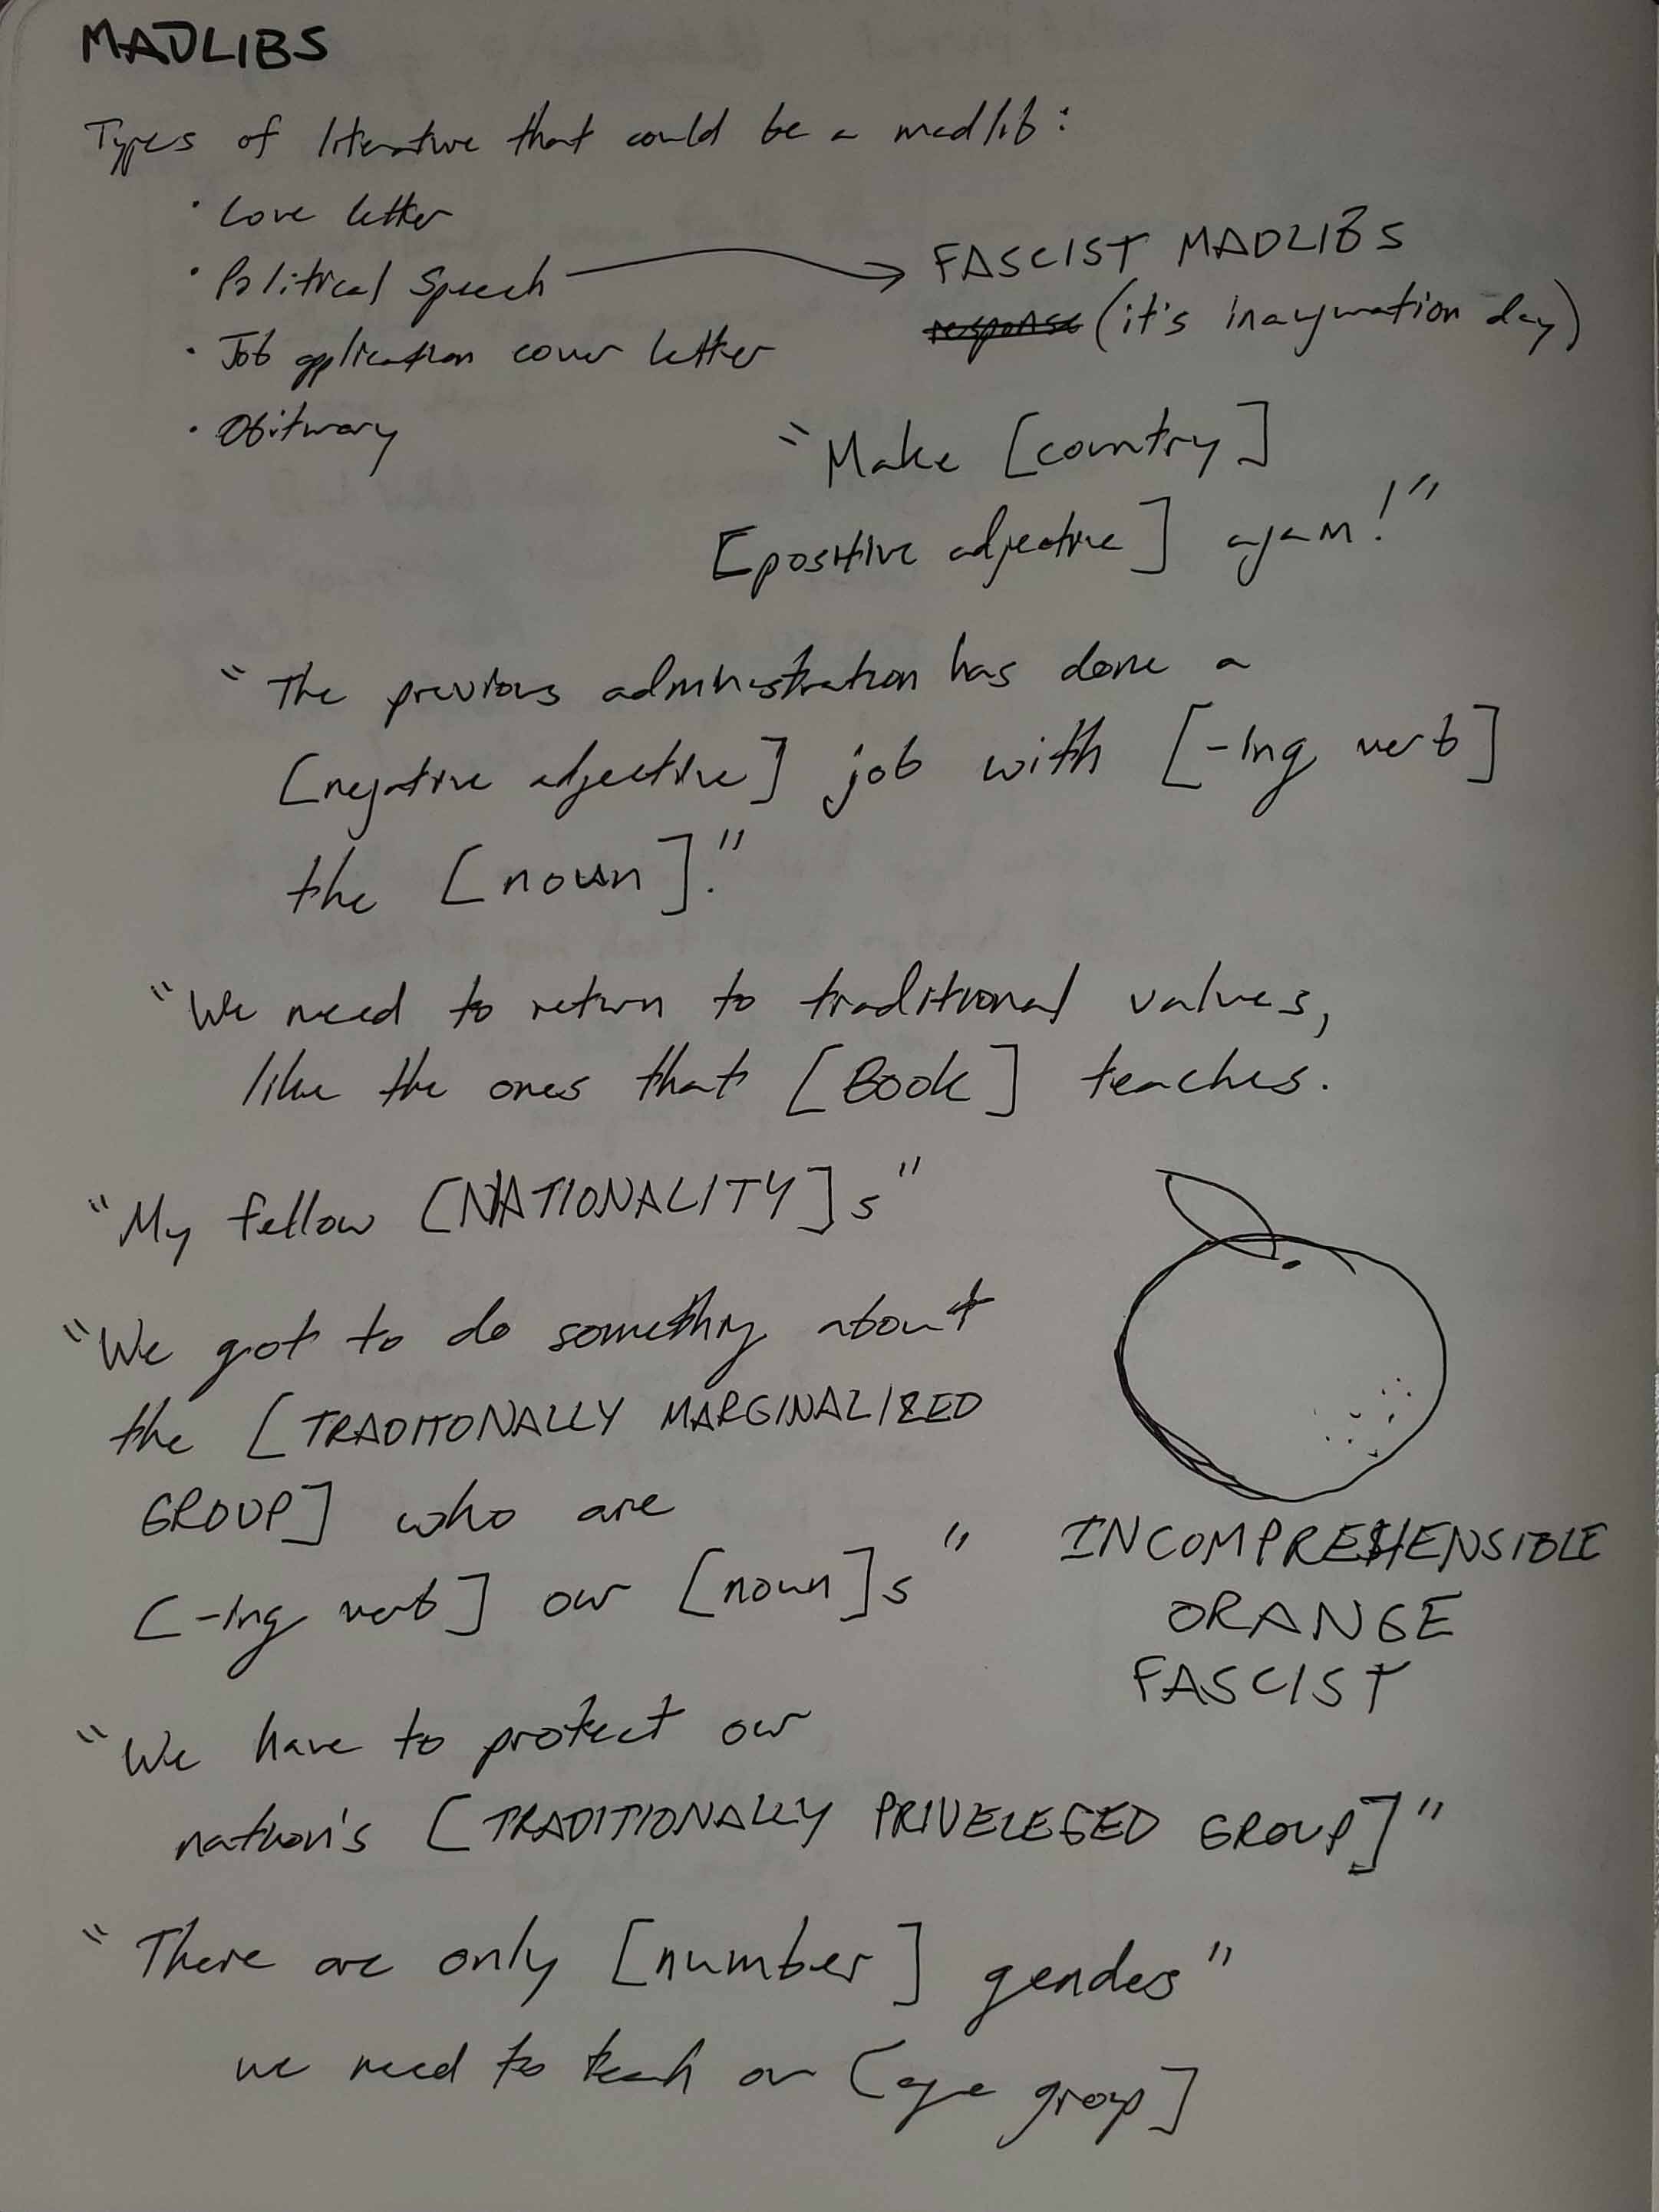 MADLIBS
Types of literature that could be a madlib:
· Love letter
· Political Speech
FASCIST MADLIBS
response (it's inauguration day)
· Job application cover letter
· Obituary
"Make [country]
[positive adjective] again!"
"The previous administration has done a
[negative adjective] job with [-ing verb]
the [noun]."
"We need to return to traditional values,
like the ones that [Book] teaches.
"My fellow [NATIONALITY]s"
"We got to do something about
the [TRADITONALLY MARGINALIZED
GROUP] who are
[-ing verb] our [noun]s"
INCOMPREHENSIBLE
ORANGE
FASCIST
"We have to protect our
nation's [TRADITIONALLY PRIVELEGED GROUP]"
"There are only [number] genders"
we need to teach our [age group]